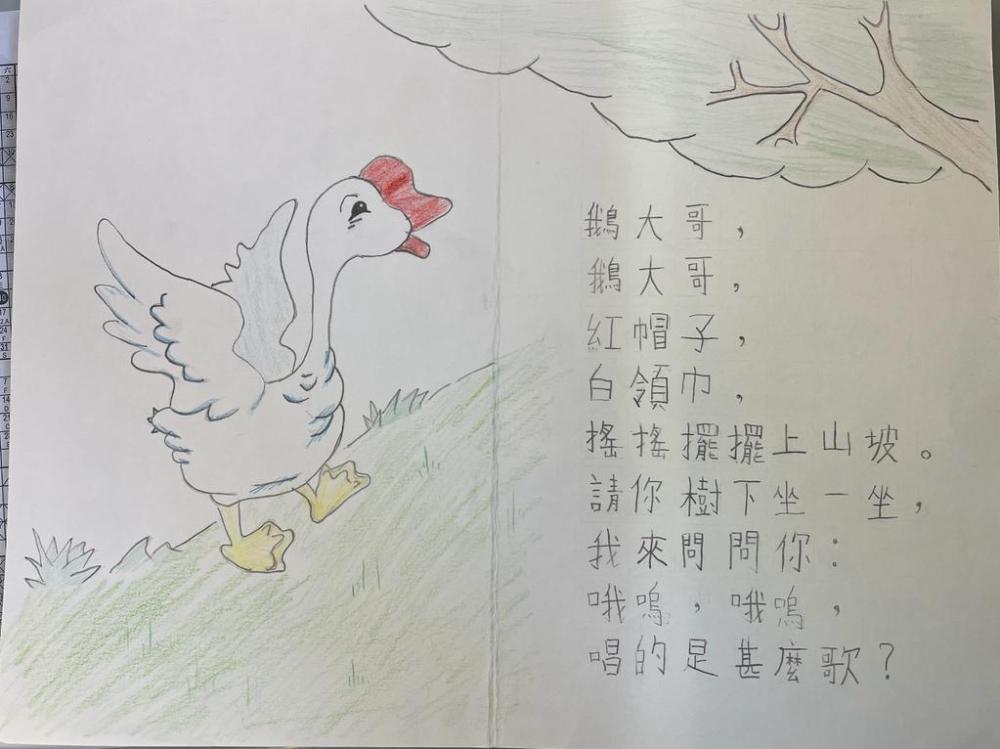 鵝大哥，
鵝大哥，
紅帽子，
白領巾，
搖搖擺擺上山坡。
請你樹下坐一坐，
我來問問你：
哦嗚，哦嗚，
唱的是甚麼歌？